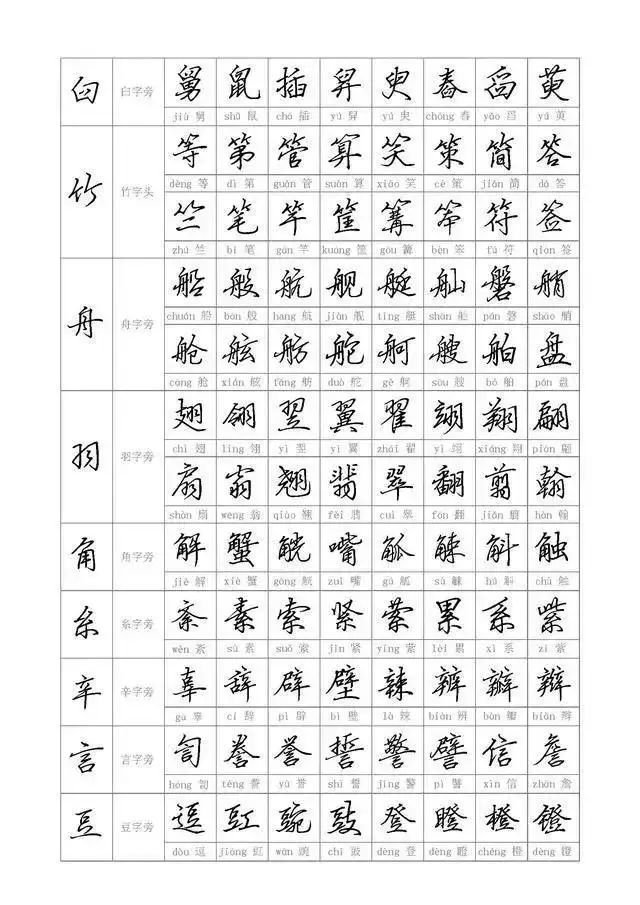 臼 臼字旁 舅 鼠 插 舁 臾 舂 舀 萸
jiù 舅 shǔ 鼠 chā 插 yú 舁 yú 臾 chōng 舂 yǎo 舀 yú 萸
竹 竹字头 等 第 管 算 笑 策 简 答
děng 等 dì 第 guǎn 管 suàn 算 xiào 笑 cè 策 jiǎn 简 dá 答
竺 笔 竿 筐 篝 笨 符 签
zhú 竺 bǐ 笔 gān 竿 kuāng 筐 gōu 篝 bèn 笨 fú 符 qiān 签
舟 舟字旁 船 般 航 舰 艇 舢 磐 艄
chuán 船 bān 般 háng 航 jiàn 舰 tǐng 艇 shān 舢 pán 磐 shāo 艄
舱 舷 舫 舵 舸 艘 舶 盘
cāng 舱 xián 舷 fǎng 舫 duò 舵 gě 舸 sōu 艘 bó 舶 pán 盘
羽 羽字旁 翅 翎 翌 翼 翟 翊 翔 翩
chì 翅 líng 翎 yì 翌 yì 翼 zhái 翟 yì 翊 xiáng 翔 piān 翩
扇 翁 翘 翡 翠 翻 翦 翰
shàn 扇 wēng 翁 qiào 翘 fěi 翡 cuì 翠 fān 翻 jiǎn 翦 hàn 翰
角 角字旁 解 蟹 觥 嘴 觚 觫 斛 触
jiě 解 xiè 蟹 gōng 觥 zuǐ 嘴 gū 觚 sù 觫 hú 斛 chù 触
糸 糸字旁 紊 素 索 紧 萦 累 系 紫
wěn 紊 sù 素 suǒ 索 jǐn 紧 yíng 萦 lèi 累 xì 系 zǐ 紫
辛 辛字旁 辜 辞 辟 壁 辣 辨 瓣 辩
gū 辜 cí 辞 pì 辟 bì 壁 là 辣 biàn 辨 bàn 瓣 biàn 辩
言 言字旁 訇 誊 誉 誓 警 譬 信 詹
hōng 訇 téng 誊 yù 誉 shì 誓 jǐng 警 pì 譬 xìn 信 zhān 詹
豆 豆字旁 逗 豇 豌 豉 登 瞪 橙 镫
dòu 逗 jiāng 豇 wān 豌 chǐ 豉 dēng 登 dèng 瞪 chéng 橙 dèng 镫